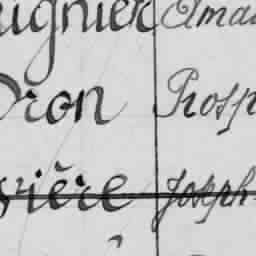 ugnier Ama
Dron Prosp
vière Joseph